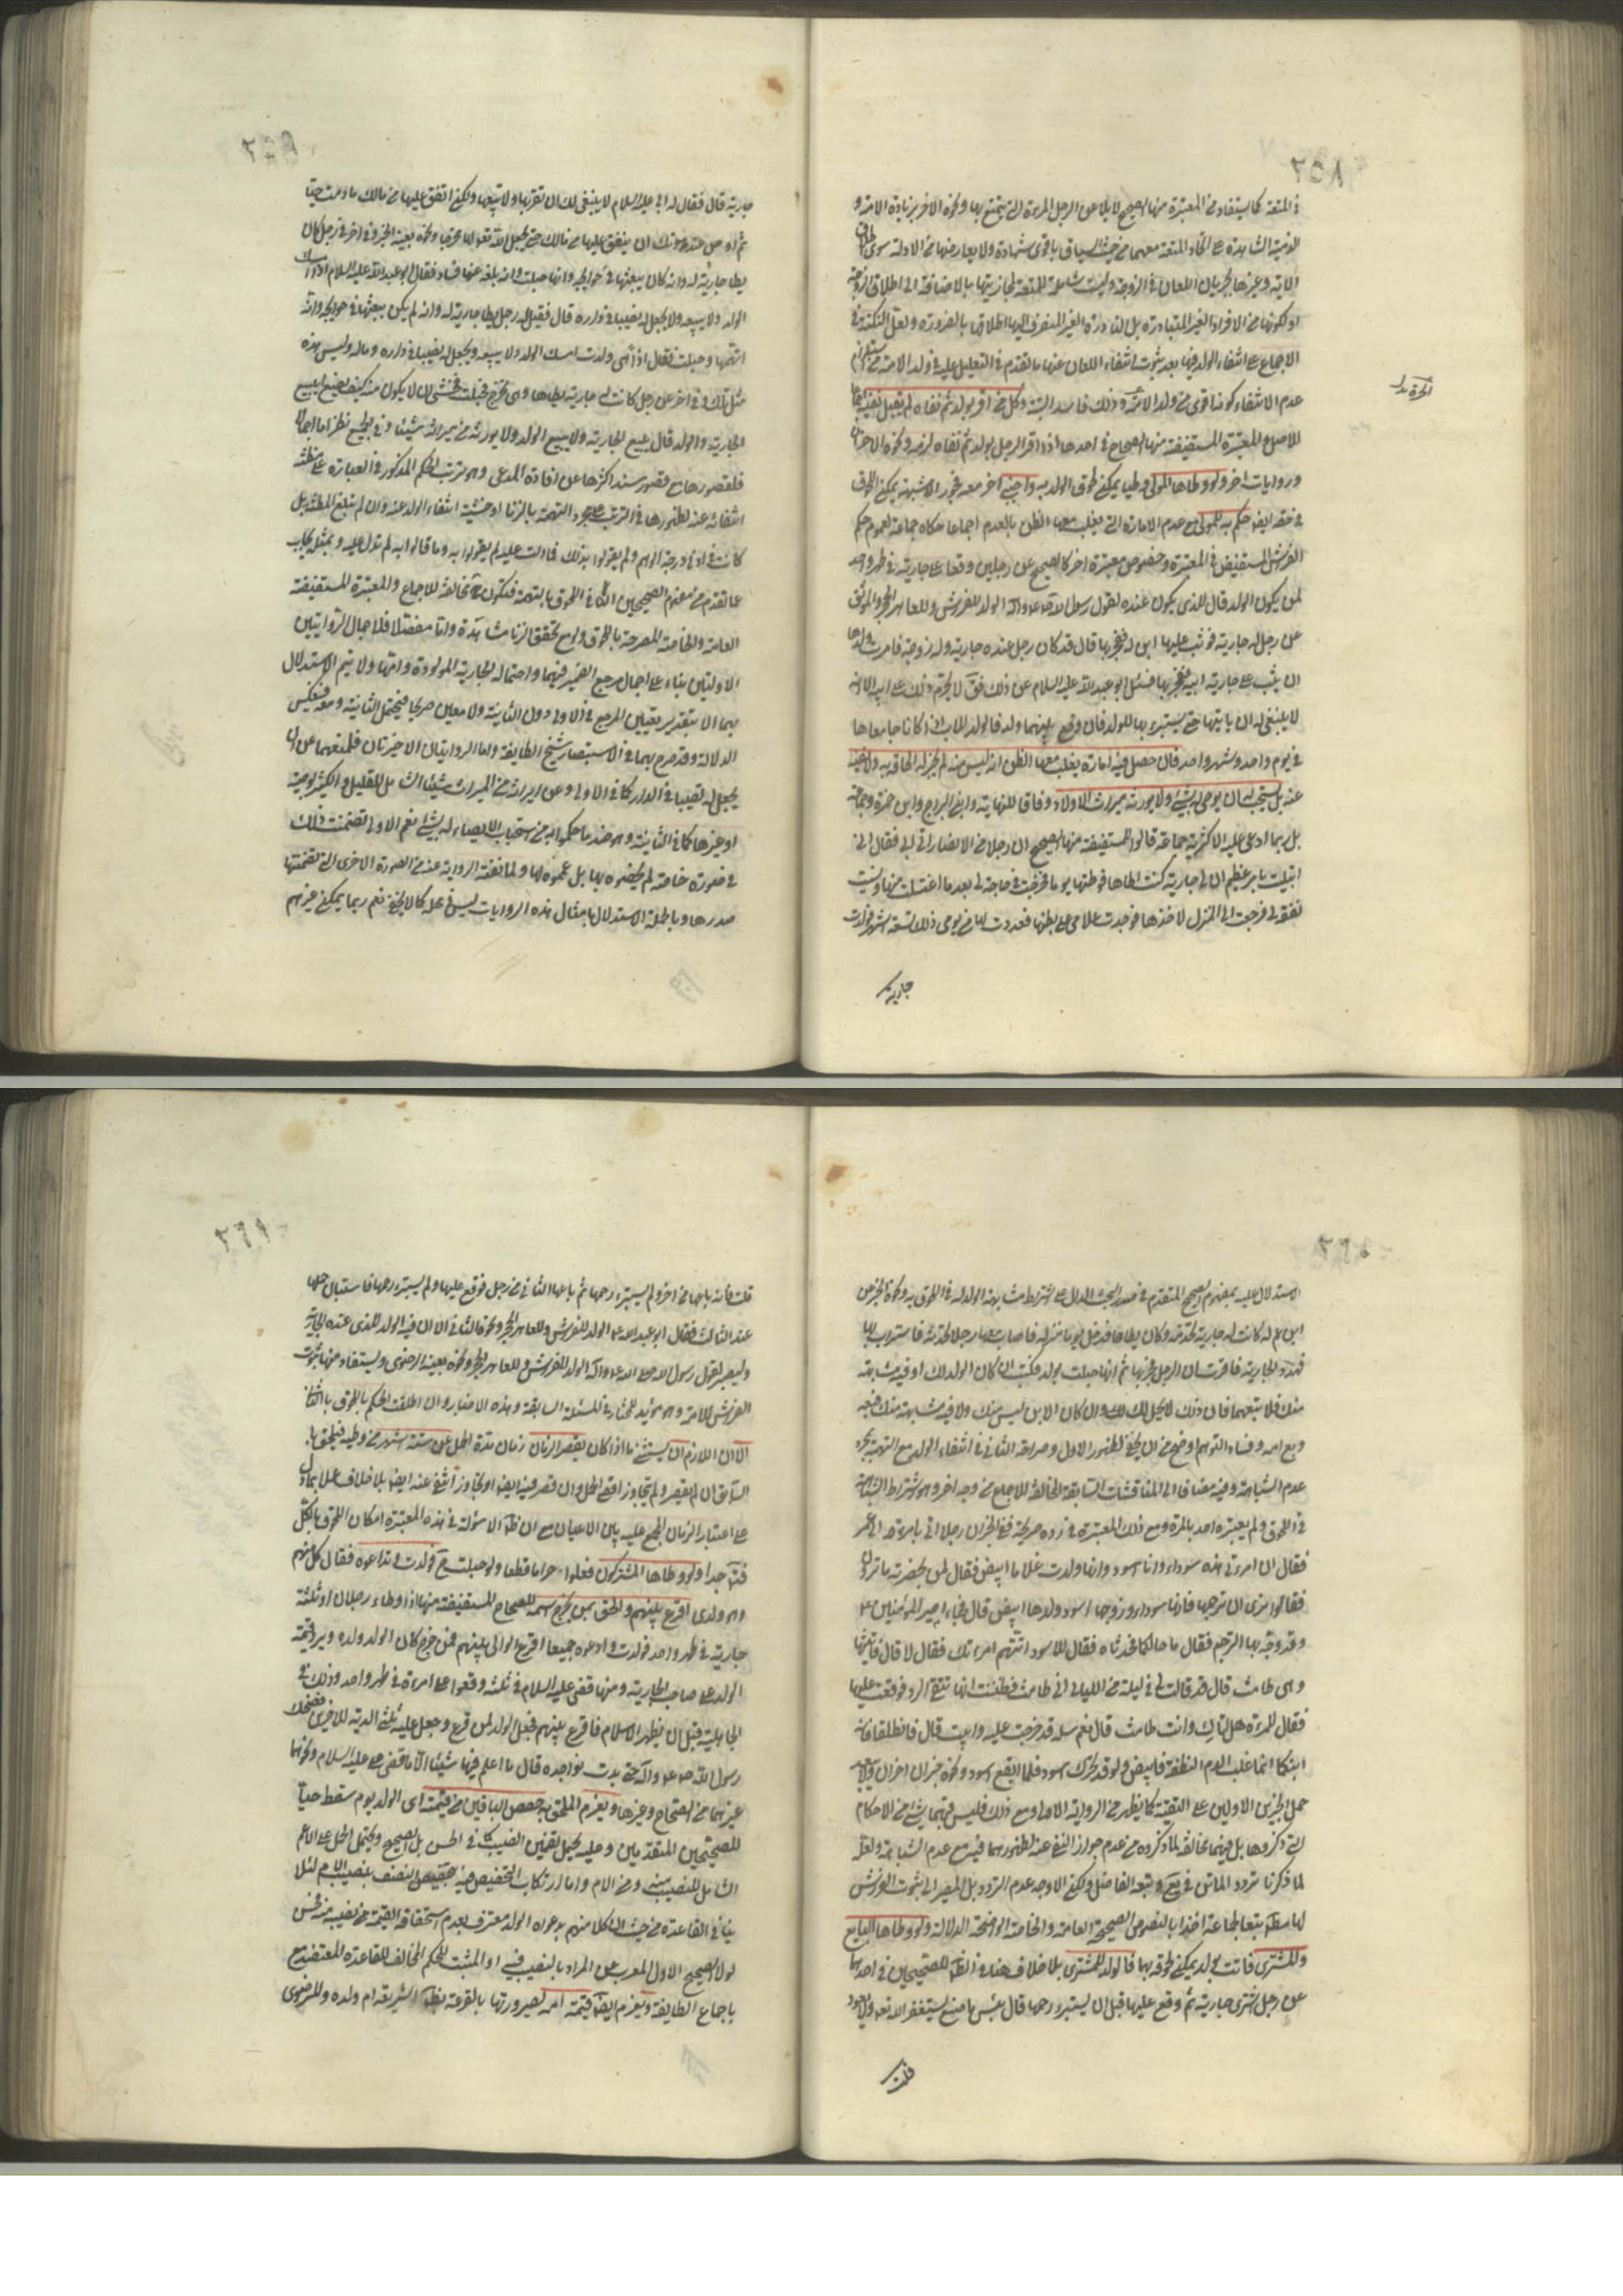 ٢٥٨
في المتعة كما يستفاد من المعتبرة منها الصحيح لا يلاعن الرجل المرءة التي يتمتع بها ونحوه الاخر بزيادة الامة و
الذمية الشاهدة على اتحاد المتعة معهما من حيث السياق باقوى شهادة ولا يعارضها من الادلة سوى اطلاق
الاية وغيرها بجريان اللعان في الزوجة وليست شاملة للمتعة لمجازيتها بالاضافة الى اطلاق الزوجة
او لكونها من الافراد الغير المتبادرة بل النادرة الغير المنصرف اليها اطلاق بالضرورة ولعل النكتة في
الاجماع على انتفاء الولد فيها بعد ثبوت انتفاء اللعان عنها ما تقدم في التعليل عليه في ولد الامة من استلزام
عدم الانتفاء كونها اقوى من ولد الامة وذلك فاسد البتة وكل من اقر بولد ثم نفاه لم يقبل نفيه اجماعا
للاصل المعتبرة المستفيضة منها الصحاح في احدها اذا اقر الرجل بولد ثم نفاه لزمه ونحوه الاخران
وروايات اخر ولو وطاها المولى وطيا يمكن لحوق الولد به واجنبي اخر معه فجورا لا شبهة يمكن اللحوق
في حقه ايضا حكم به للمولى مع عدم الامارة التي يغلب معها الظن بالعدم اجماعا حكاه جماعة لعموم حكم
الفراش المستفيض في المعتبرة وخصوص معتبرة اخر كالصحيح عن رجلين وقعا على جارية في طهر واحد
لمن يكون الولد قال للذي يكون عنده لقول رسول الله ص الولد للفراش وللعاهر الحجر والموثق
عن رجل له جارية فوثب عليها ابن له ففجر بها قال قد كان رجل عنده جارية وله زوجة فامرت ولدها
ان يثب على جارية ابيه ففجر بها فسئل ابو عبد الله عليه السلام عن ذلك فق لا يحرم ذلك على ابيه الا انه
لا ينبغي له ان ياتيها حتى يستبريها للولد فان وقع بينهما ولد فالولد للاب اذا كانا جامعاها
في يوم واحد وشهر واحد فان حصل فيه امارة يغلب معها الظن انه ليس منه لم يجز له الحاقه به ولا نفيه
عنه بل يستحب ان يوصى له بشئ ولا يورثه ميراث الاولاد وفاقا للنهاية وابني البراج وابن حمزة وجماعة
بل ربما ادعي عليه الاكثرية جماعة قالوا للمستفيضة منها الصحيح ان رجلا من الانصار اتى ابي فقال اني
ابتليت بامر عظيم ان لي جارية كنت اطاها فوطئتها يوما فخرجت في حاجة لي بعد ما اغتسلت منها ونسيت
نفقة لي فرجعت الى المنزل لاخذها فوجدت غلامي على بطنها فعددت لها من يومي ذلك تسعة اشهر فولدت
جارية
٢٥٩
جارية قال فقال له ابي عليه السلام لا ينبغي لك ان تقربها ولا تبيعها ولكن انفق عليها من مالك ما دمت حيا
ثم اوص عند موتك ان ينفق عليها من مالك حتى يجعل الله تعالى لها مخرجا ونحوه بعينه الخبر وفي اخر في رجل كان
يطا جارية له وانه كان يبعثها في حوائجه وانها حبلت وانه بلغه عنها فساد فقال ابو عبد الله عليه السلام اذا ولدت امسك
الولد ولا يبيعه ولا يجعل له نصيبا في داره قال فقيل له رجل يطا جارية له وانه لم يكن يبعثها في حوائجه وانه
اتهمها وحبلت فقال اذا هي ولدت امسك الولد ولا يبيعه ويجعل له نصيبا في داره وماله وليس هذه
مثل تلك وفي اخر عن رجل كانت له جارية يطاها وهي تخرج فحبلت فخشي ان لا يكون منه كيف يصنع ايبيع
الجارية والولد قال يبيع الجارية ولا يبيع الولد ولا يورثه من ميراثه شيئا وفي الجميع نظر اما اجمالا
فلقصورها مع قصور سند اكثرها عن افادة المدعى وهو ترتب الحكم المذكور في العبارة على مظنة
انتفائه عنه لظهورها في الترتب على مجرد التهمة بالزنا او خشية انتفاء الولد عنه وان لم تبلغ المظنة بل
كانت في ادنى درجة الوهم ولم يقولوا بذلك فما دلت عليه لم يقولوا به وما قالوا به لم تدل عليه وبمثله يجاب
عما تقدم من مفهوم الصحيحين النافي اللحوق بالتهمة فتكون ح مخالفة للاجماع والمعتبرة المستفيضة
العامة والخاصة المصرحة باللحوق ولو مع تحقق الزنا مشاهدة واما مفصلا فلاجمال الروايتين
الاوليين بناء على اجمال مرجع الضمير فيهما واحتماله الجارية المولودة وامها ولا يتم الاستدلال
بهما الا بتقدير تعيين المرجع في الاولى دون الثانية ولا معين صريحا فيحتمل الثانية ومعه فينعكس
الدلالة وقد صرح بهما في الاستبصار شيخ الطايفة واما الروايتان الاخيرتان فلمنعهما عن ان
يجعل له نصيبا في الدار كما في الاولى وعن ايراثه من الميراث شيئا الشامل للقليل والكثير بوصية
او غيرها كما في الثانية وهو ضد ما حكموا به من استحباب الايصاء له بشئ نعم الاولى تضمنت ذلك
في صورة خاصة لم يخصوه بها بل عموه لها ولما نفته الرواية عنه من الصورة الاخرى التي تضمنتها
صدرها وبالجملة الاستدلال بامثال هذه الروايات ليس في محله كما لا يخفى نعم ربما يمكن غيرهم
٢٦٠
الاستدلال عليه بمفهوم الصحيح المتقدم في صدر البحث الدال على اشتراط مشابهة الولد له في اللحوق به ونحوه الخبر عن
ابن عم له كانت له جارية تخدمه وكان يطاها فدخل يوما منزله فاصاب معها رجلا تحدثه فاستراب بها
فهدد الجارية فاقرت ان الرجل فجر بها ثم انها حبلت بولد فكتب ان كان الولد لك او فيه مشابهة
منك فلا تبعهما فان ذلك لا يحل لك وان كان الابن ليس منك ولا فيه مشابهة منك فبعه
وبع امه وفساد التوهم اوضح من ان يخفى لظهور الاول وصراحة الثاني في انتفاء الولد مع التهمة بمجرد
عدم الشباهة وفيه مضافا الى المناقشات السابقة المخالفة للاجماع من وجه اخر وهو اشتراط الشباهة
في اللحوق ولم يعتبره احد بالمرة ومع ذلك المعتبرة في رده صريحة ففي الخبر ان رجلا اتى بامرءته الى عمر
فقال ان امرءتي هذه سوداء وانا اسود وانها ولدت غلاما ابيض فقال لمن بحضرته ما ترون
فقالوا نرى ان ترجمها فانها سوداء وزوجها اسود وولدها ابيض قال فجاء امير المؤمنين ع
وقد وجه بها الترجم فقال ما حالكما فحدثاه فقال للاسود اتتهم امرءتك فقال لا قال فاتيتها
وهي طامث قال قد قالت لي في ليلة من الليالي اني طامث فظننت انها تتقي البرد فوقعت عليها
فقال للمرءة هل اتاك وانت طامث قال نعم سله قد خرجت عليه وابيت قال فانطلقا فانه
ابنكما انما غلب الدم النطفة فابيض ولو قد تحرك اسود فلما ايفع اسود ونحوه خبران اخران ولا يبعد
حمل الخبرين الاولين على التقية كما يظهر من الرواية الاولى ومع ذلك فليس فيهما شئ من الاحكام
التي ذكروها بل فيهما مخالفة لما ذكروه من عدم جواز النفي عنه لظهورهما فيه مع عدم الشباهة ولعله
لما ذكرنا تردد الماتن في يع وتبعه الفاضل ولكن الاوجه عدم التردد بل المصير الى ثبوت الفراش
لها مط تبعا لجماعة اخذا بالنصوص الصحيحة العامة والخاصة الواضحة الدلالة ولو وطاها البايع
والمشتري فاتت بولد يمكن لحوقه بهما فالولد للمشتري بلا خلاف هنا في الظ للصحيحين في احدهما
عن رجل اشترى جارية ثم وقع عليها قبل ان يستبرء رحمها قال بئس ما صنع يستغفر الله تعالى ولا يعود
قلت
٢٦١
قلت فانه باعها من اخر ولم يستبرء رحمها ثم باعها الثاني من رجل فوقع عليها ولم يستبرء رحمها فاستبان حملها
عند الثالث فقال ابو عبد الله ع الولد للفراش وللعاهر الحجر ونحوها الثاني الا ان فيه الولد للذي عنده الجارية
وليصبر لقول رسول الله صلى الله عليه وآله الولد للفراش وللعاهر الحجر ونحوه بعينه الرضوي ويستفاد منها ثبوت
الفراش للامة وهو مؤيد للمختار في المسئلة السابقة وهذه الاخبار وان اطلقت الحكم باللحوق بالثاني
الا ان اللازم ان يستثنى ما اذا كان يقصر الزمان زمان مدة الحمل عن ستة اشهر من وطيه فيلحق با
السابق ان لم يقصر ولم يتجاوز اقصى الحمل وان قصر فيه ايضا او تجاوز انتفى عنه ايضا بلا خلاف عملا بما دل
على اعتبار الزمان المجمع عليه بين الاعيان مع ان ظ الاسولة في هذه المعتبرة امكان اللحوق بالكل
فت جدا ولو وطاها المشتركون فعلوا حراما قطعا ولو حبلت ح فولدت وتداعوه فقال كل منهم
وهو ولدي اقرع بينهم والحق بمن يخرج اسمه للصحاح المستفيضة منها اذا وطاء رجلان او ثلثة
جارية في طهر واحد فولدت وادعوه جميعا اقرع الوالي بينهم فمن خرج كان الولد ولده ويرد قيمة
الولد على صاحب الجارية ومنها قضى عليه السلام في ثلثة وقعوا على امرءة في طهر واحد وذلك في
الجاهلية قبل ان يظهر الاسلام فاقرع بينهم فجعل الولد لمن قرع وجعل عليه ثلثي الدية للاخرين فضحك
رسول الله ص وآله حتى بدت نواجذه قال ما اعلم فيها شيئا الا ما قضى علي عليه السلام ونحوهما
غيرهما من الصحاح وغيرها ويغرم الملحق به حصص الباقين من قيمته اي الولد يوم سقط حيا
للصحيحين المتقدمين وعليه يحمل تضمين النصيب كما في الحسن بل الصحيح ويحتمل الحمل على الاعم
الشامل للنصيب منه ومن الام واما ارتكاب التخصيص فيه بتخصيص النصف بنصيب الام لئلا
ينافي القاعدة من حيث ان كلا منهم بدعواه الولد معترف بعدم استحقاقه القيمة من نصيبه فحسن
لولا الصحيح الاول المعرب عن المراد بالنصيب فيه او المثبت للحكم المخالف للقاعدة المعتضد مع
باجماع الطايفة ويغرم ايضا قيمة امه لصيرورتها بالقرعة بظ الشريعة ام ولده وللرضوي